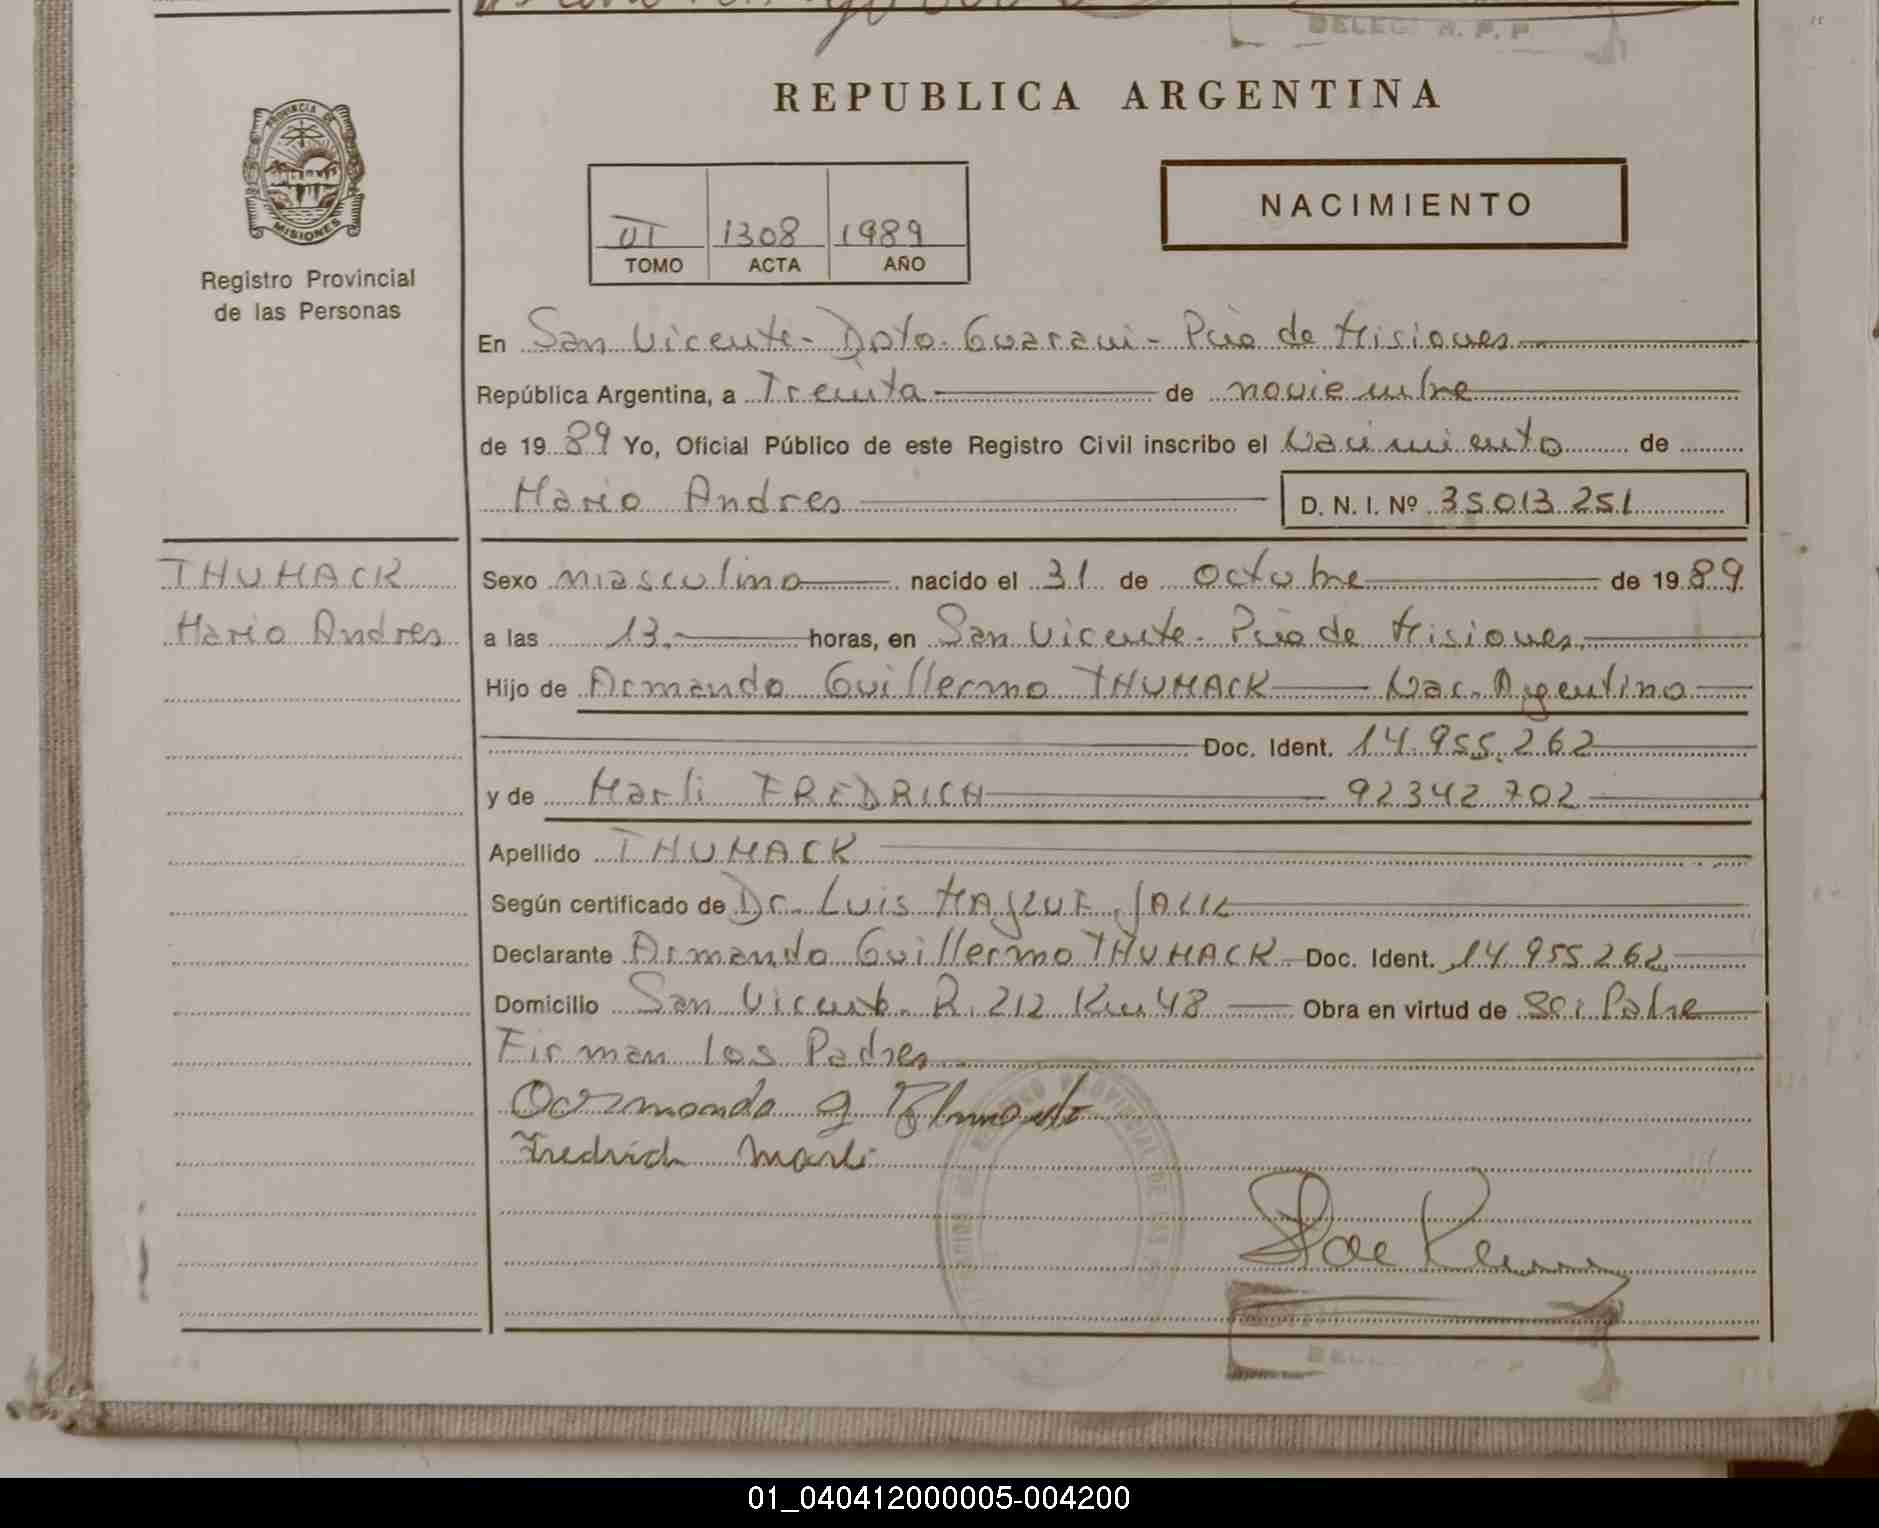 DELEG. R. P. P.
REPUBLICA ARGENTINA
PROVINCIA DE
MISIONES
Registro Provincial
de las Personas
NACIMIENTO
VI 1308 1989
TOMO ACTA AÑO
En San Vicente - Dpto. Guarani - Pcia de Misiones
República Argentina, a Treinta de noviembre
de 19 89 Yo, Oficial Público de este Registro Civil inscribo el Nacimiento de
Mario Andres D. N. I. Nº 35013251
THUMACK
Mario Andres
Sexo masculino nacido el 31 de octubre de 19 89
a las 13.- horas, en San Vicente - Pcia de Misiones.
Hijo de Armando Guillermo THUMACK Nac. Argentino
Doc. Ident. 14.955.262
y de Marli FREDRICH 92342702
Apellido THUMACK
Según certificado de Dr. Luis
Declarante Armando Guillermo THUMACK Doc. Ident. 14.955.262
Domicilio San Vicente. R. 212 Km 48 Obra en virtud de ser Padre
Firman los Padres
Armando G
Fredrich Marli
01_040412000005-004200